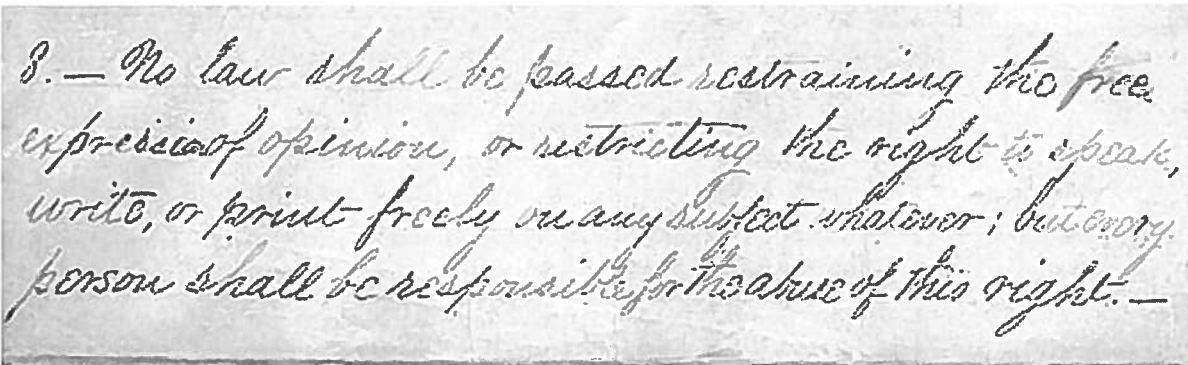 8. — No law shall be passed restraining the free
expression of opinion, or restricting the right to speak,
write, or print freely on any subject whatever; but every
person shall be responsible for the abuse of this right. —